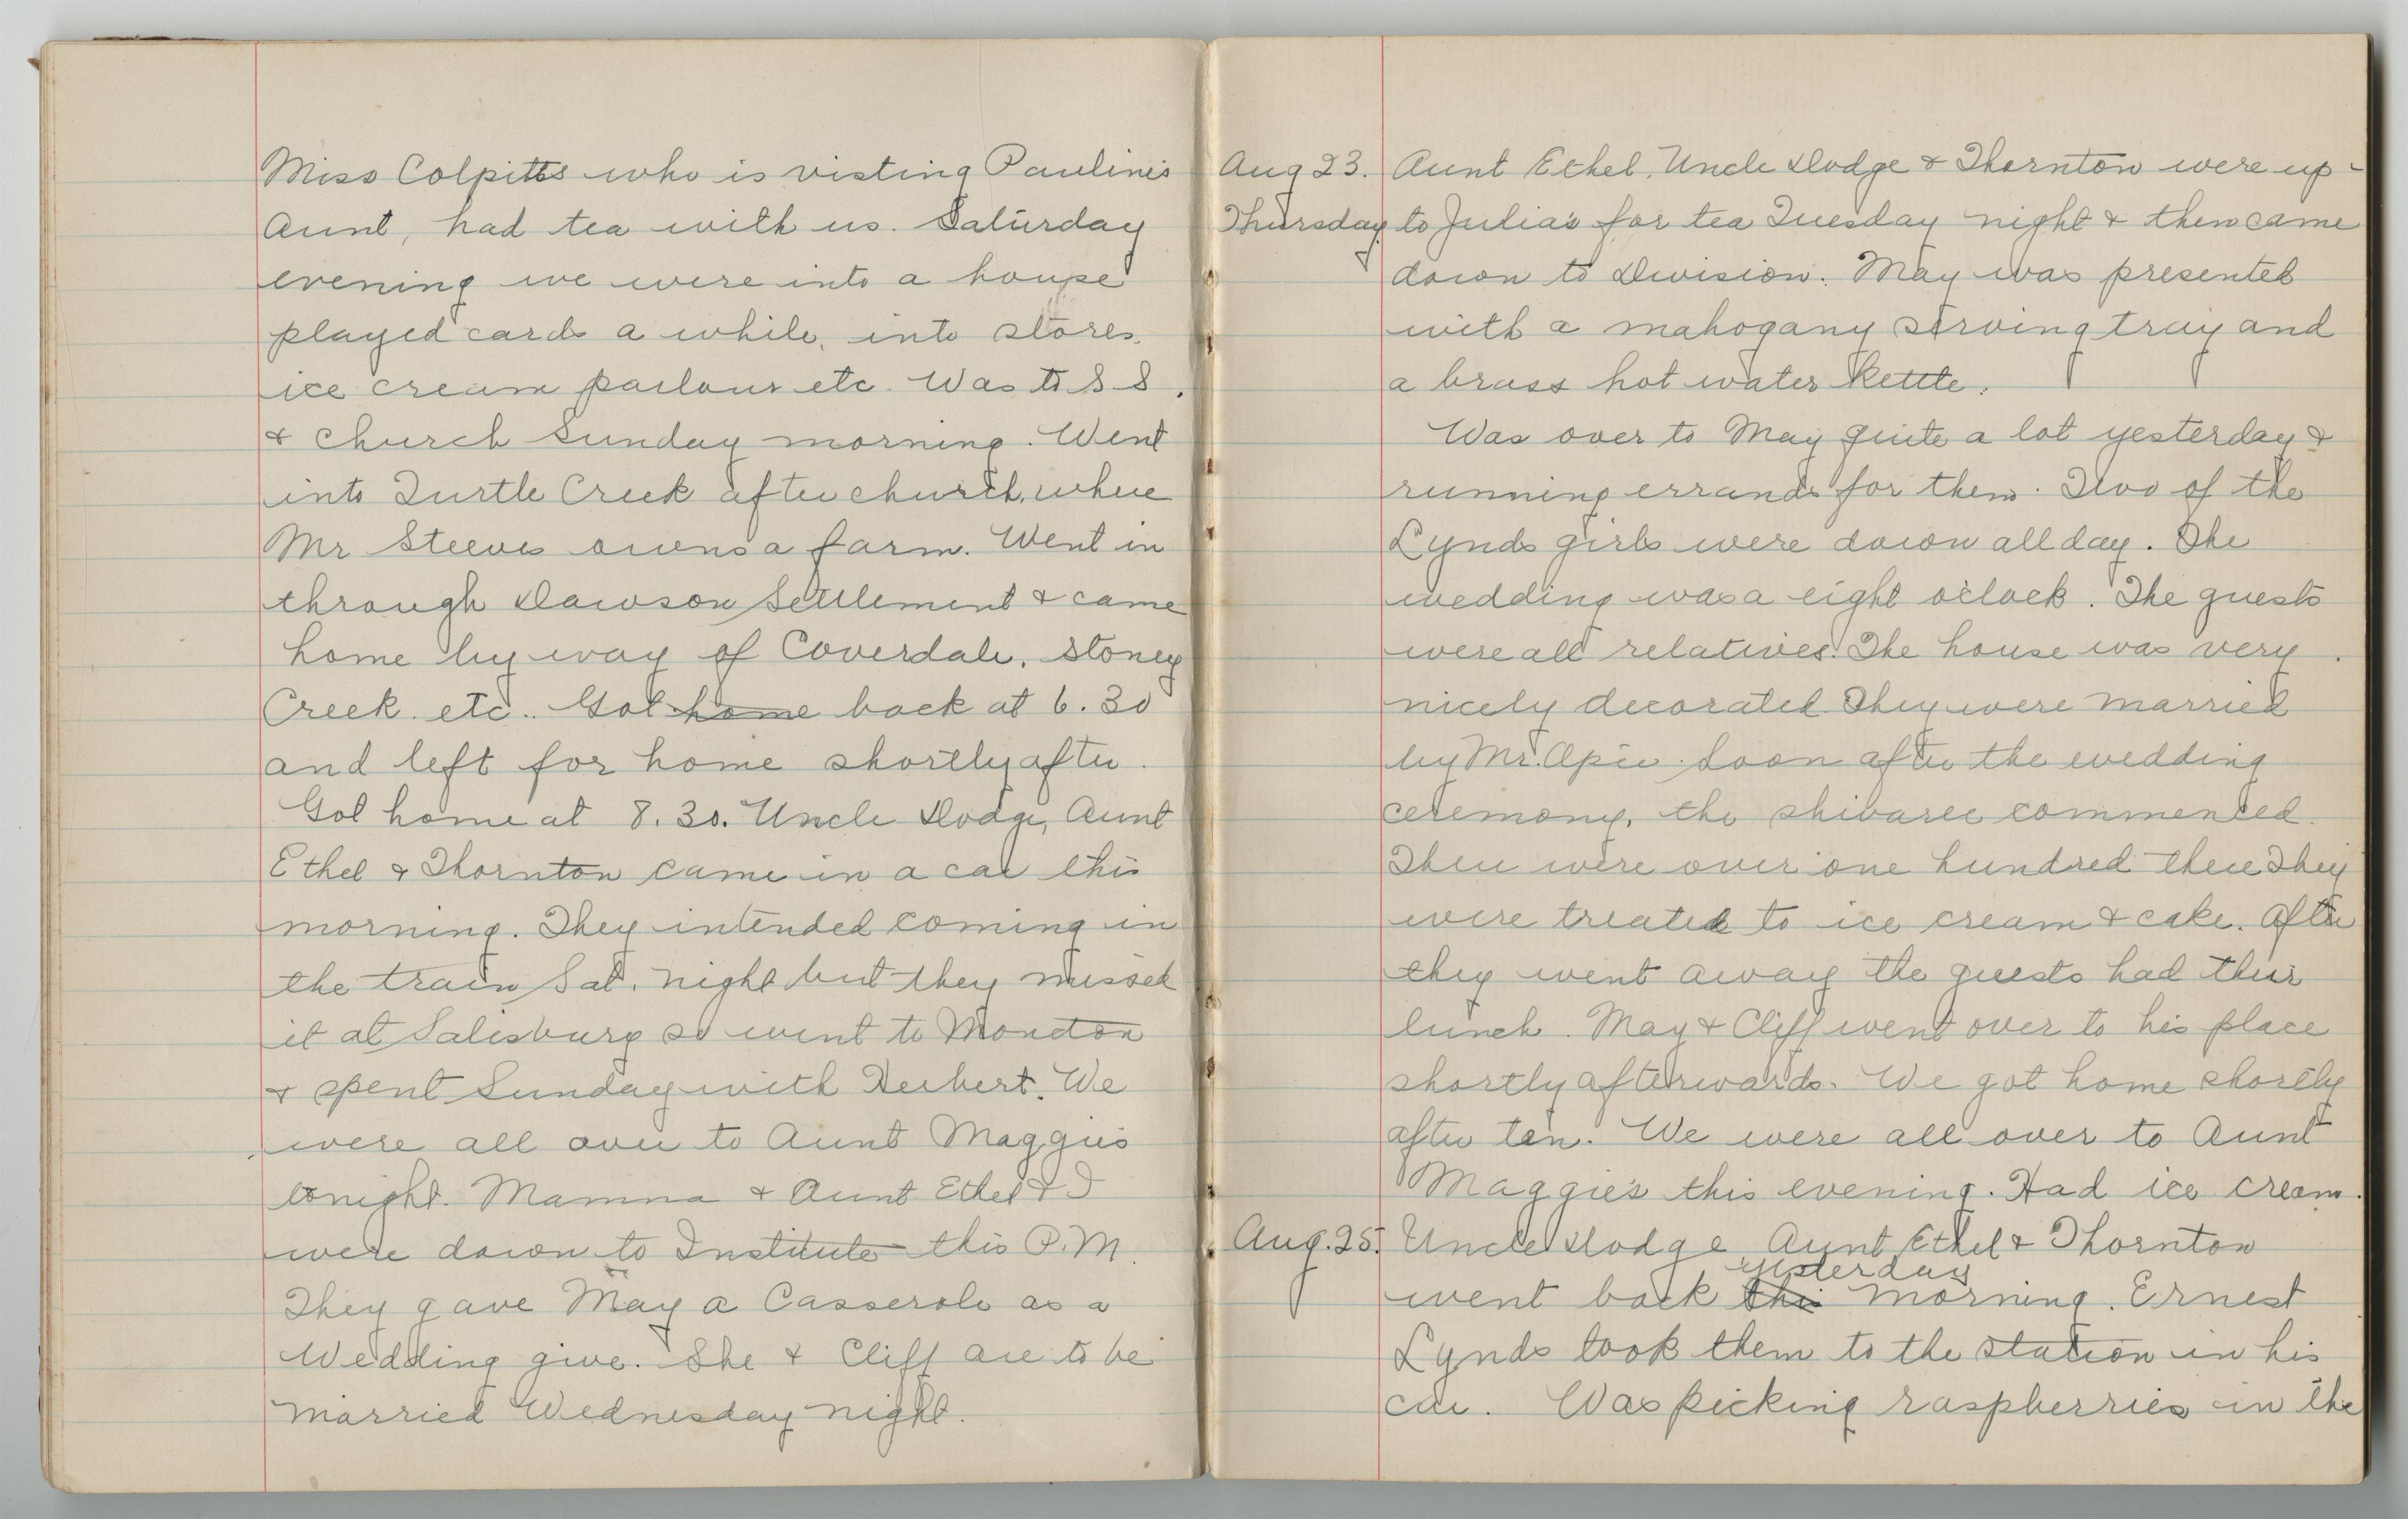 Miss Colpitts who is visting Pauline's
Aunt, had tea with us. Saturday
evening we were into a house
played cards a while, into stores,
ice cream parlour etc. Was to S S.
& church Sunday morning. Went
into Turtle Creek after church, where
Mr Steeves owns a farm. Went in
through Dawson Settlement & came
home by way of Coverdale, Stoney
Creek etc.. Got home back at 6.30
and left for home shortly after.
Got home at 8.30. Uncle Dodge, Aunt
Ethel & Thornton came in a car this
morning. They intended coming in
the train Sat. night but they missed
it at Salisbury so went to Moncton
& spent Sunday with Herbert. We
were all over to Aunt Maggies
tonight. Mamma & Aunt Ethel & I
were down to Institute this P.M.
They gave May a Casserole as a
Wedding give. She & Cliff are to be
married Wednesday night.
Aug 23. Aunt Ethel, Uncle Dodge & Thornton were up-
Thursday to Julia's for tea Tuesday night & then came
down to Division. May was presented
with a mahogany serving tray and
a brass hot water kettle.
Was over to May quite a lot yesterday &
running errands for them. Two of the
Lynds girls were down all day. The
wedding was a eight o'clock. The guests
were all relatives. The house was very
nicely decorated. They were married
by Mr. Soon after the wedding
ceremony, the shivaree commenced.
There were over one hundred there They
were treated to ice cream & cake. After
they went away the guests had their
lunch. May & Cliff went over to his place
shortly afterwards. We got home shortly
after ten. We were all over to Aunt
Maggie's this evening. Had ice cream.
Aug. 25. Uncle Dodge, Aunt Ethel & Thornton
yesterday
went back this morning. Ernest
Lynds took them to the station in his
car. Was picking raspberries in the